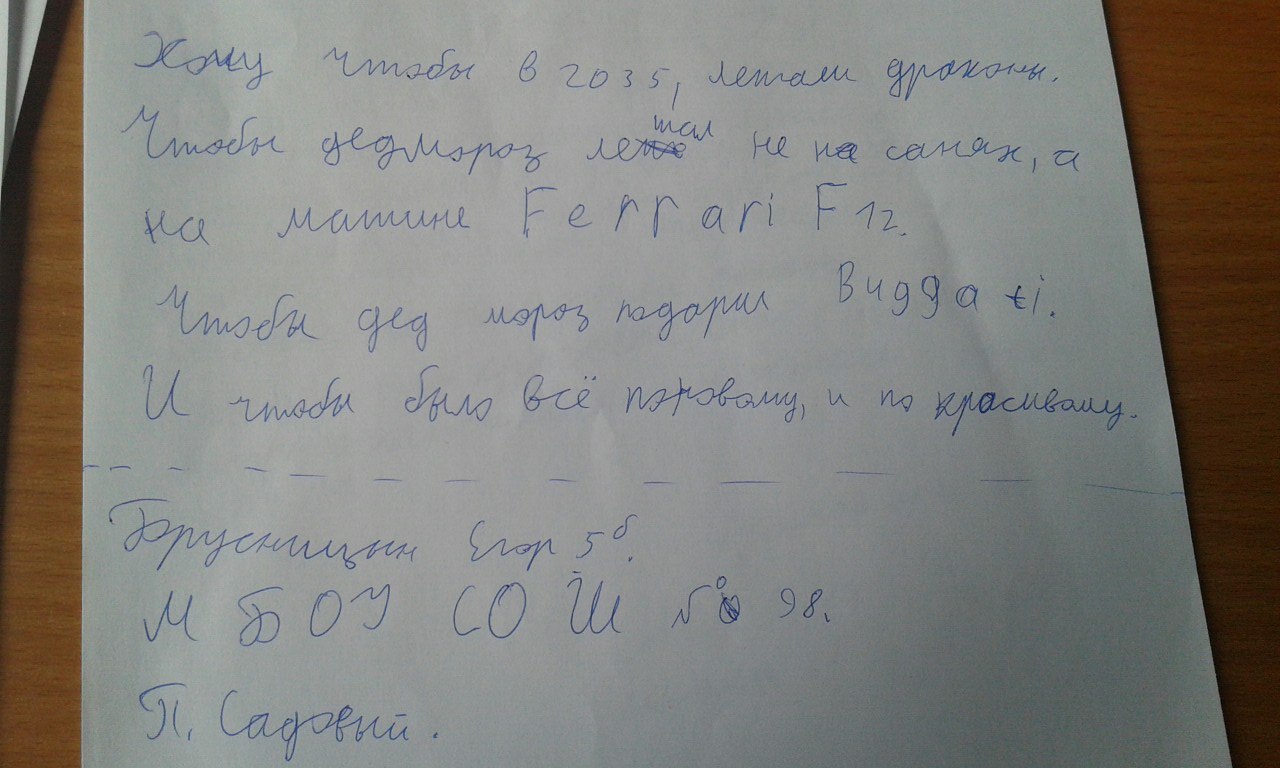 Хочу чтобы в 2035, летали драконы.
Чтобы дедмороз летал не на санях, а
на машине Ferrari F12.
Чтобы дед мороз подарил Buggati.
И чтобы было всё поновому, и по красивому.
Брусницын Егор 5б.
МБОУ СОШ № 98.
П. Садовый.